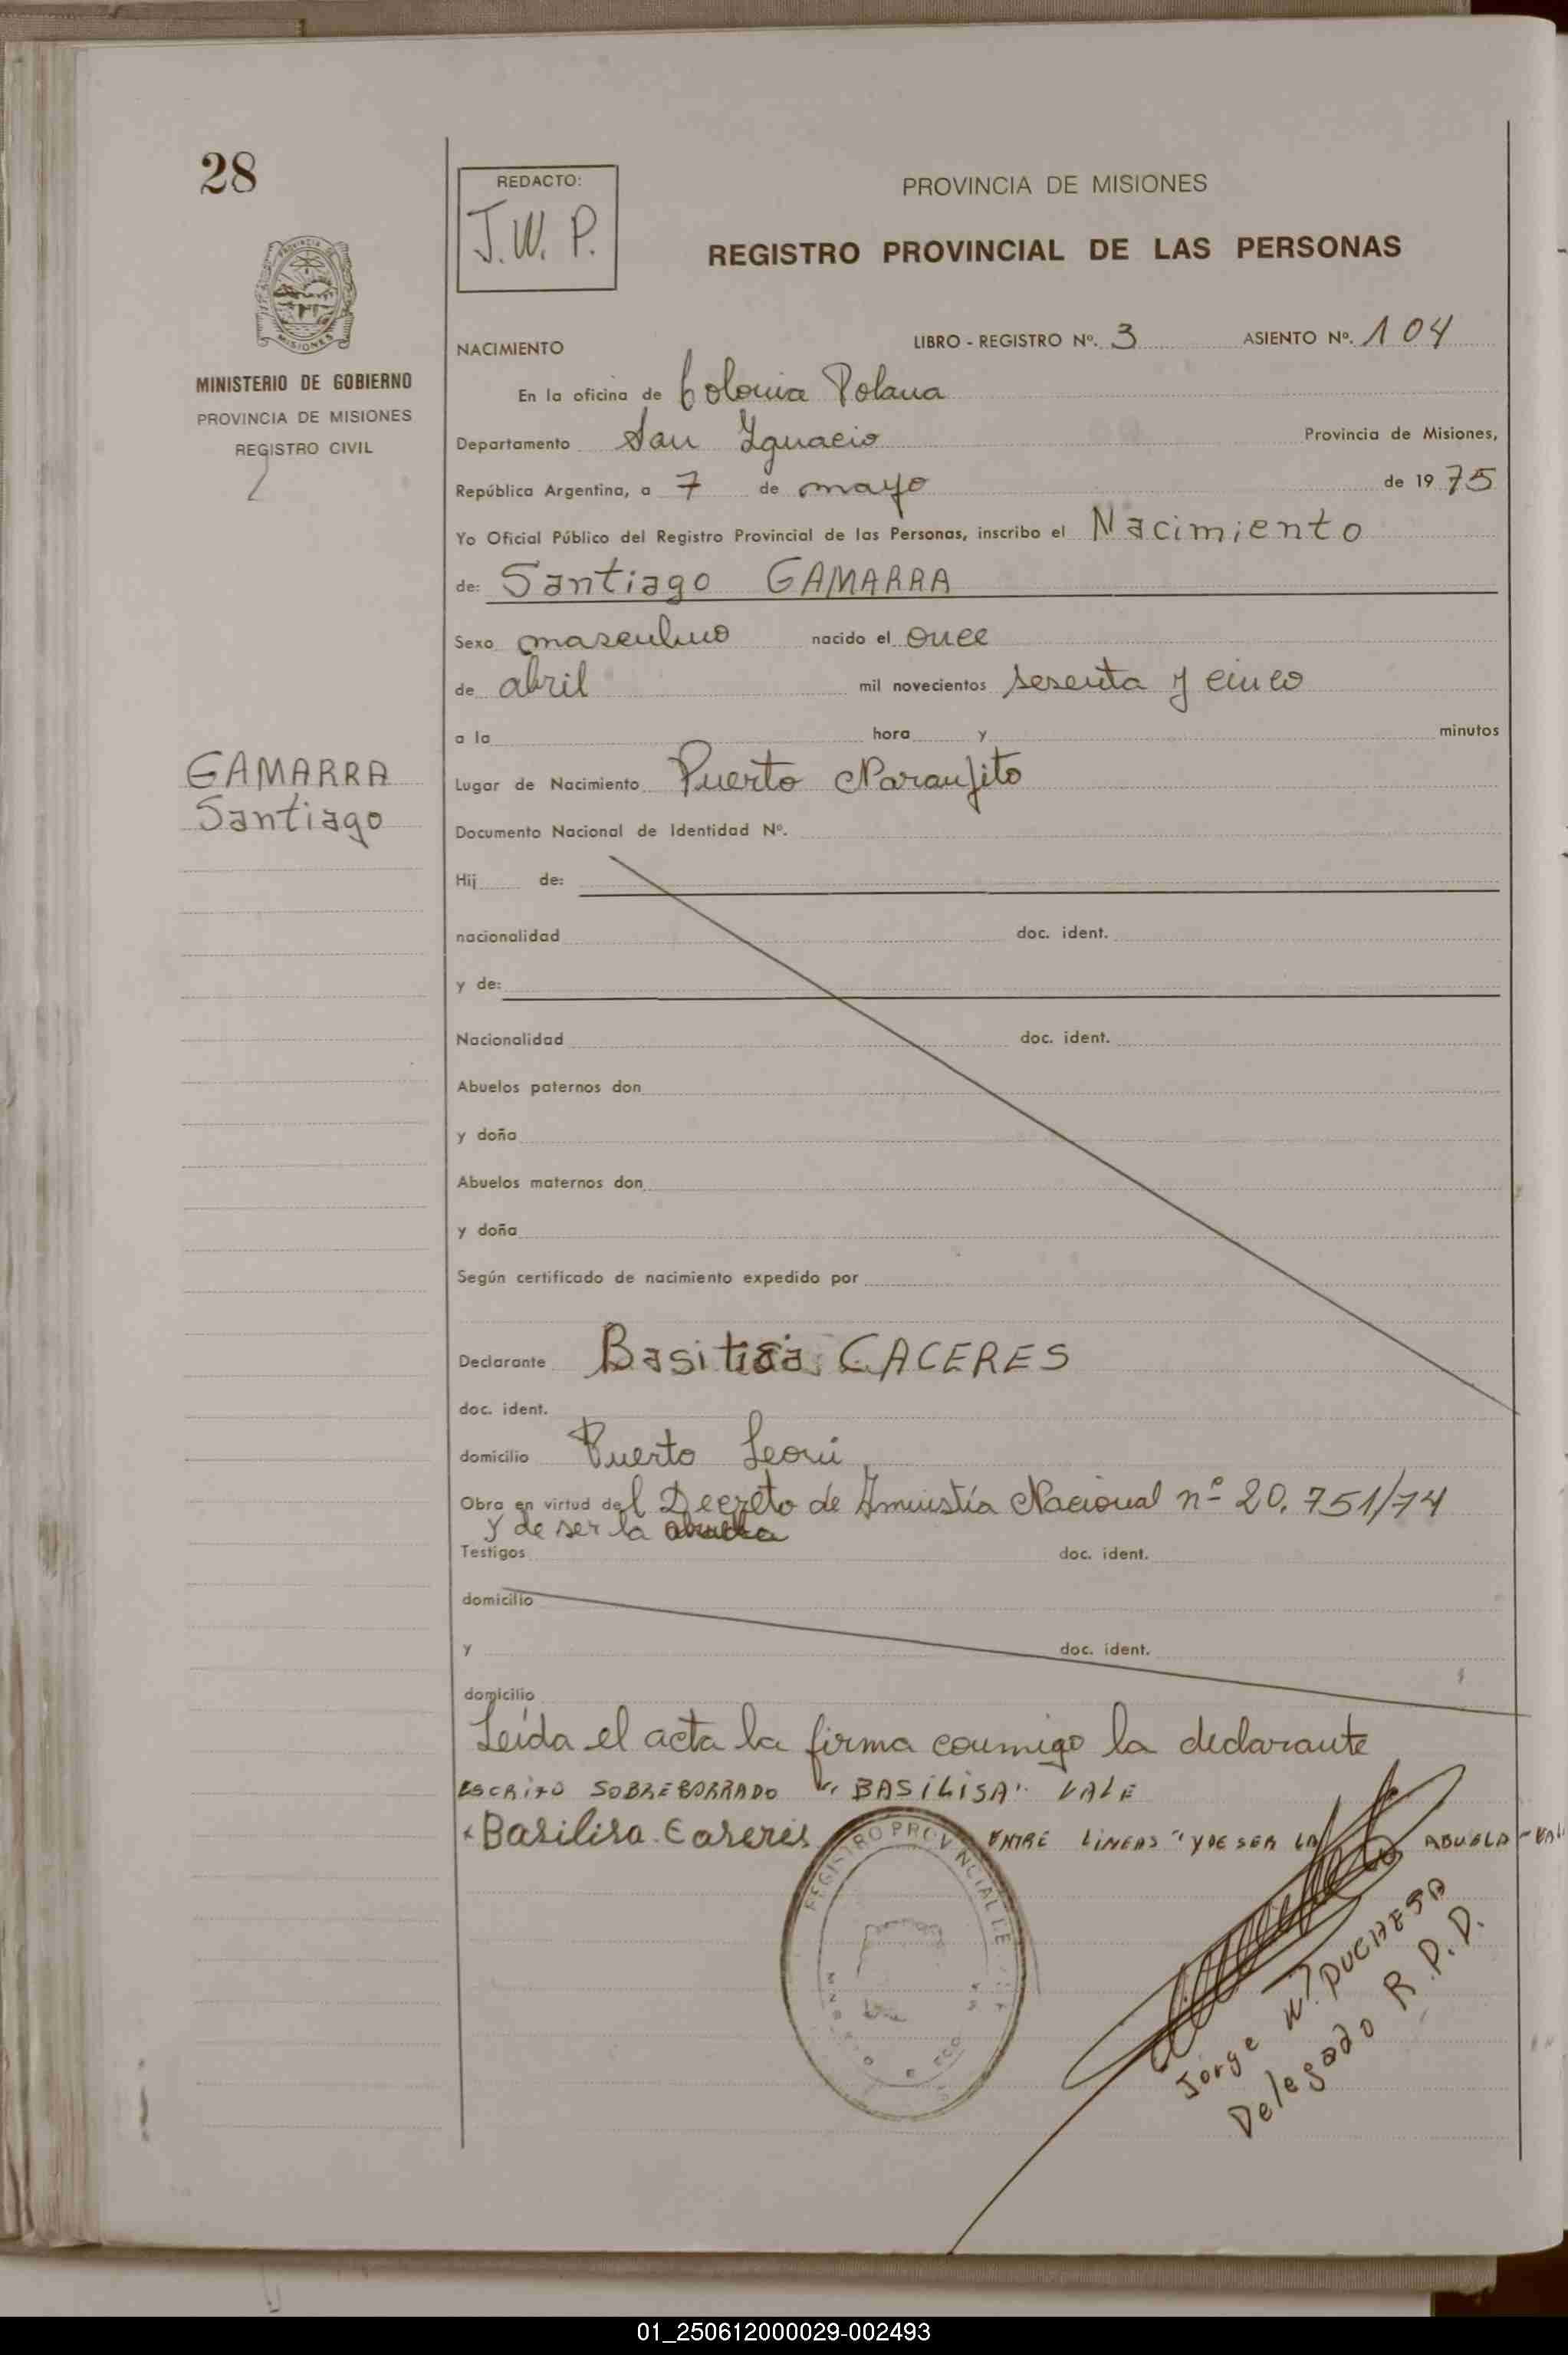 28
REDACTO:
J. W. P.
PROVINCIA DE MISIONES
REGISTRO PROVINCIAL DE LAS PERSONAS
MISIONES
MINISTERIO DE GOBIERNO
PROVINCIA DE MISIONES
REGISTRO CIVIL
NACIMIENTO
LIBRO - REGISTRO Nº. 3 ASIENTO Nº. 104
En la oficina de Colonia Polana
Departamento San Ygnacio Provincia de Misiones,
República Argentina, a 7 de mayo de 1975
Yo Oficial Público del Registro Provincial de las Personas, inscribo el Nacimiento
de: Santiago GAMARRA
Sexo masculino nacido el once
de abril mil novecientos sesenta y cinco
a la hora y minutos
GAMARRA
Santiago
Lugar de Nacimiento Puerto Naranjito
Documento Nacional de Identidad Nº.
Hij de:
nacionalidad doc. ident.
y de:
Nacionalidad doc. ident.
Abuelos paternos don
y doña
Abuelos maternos don
y doña
Según certificado de nacimiento expedido por
Declarante CACERES
doc. ident.
domicilio Puerto Leoni
Obra en virtud del Decreto de Amnistía Nacional nº 20.751/74
y de ser la abuela
Testigos doc. ident.
domicilio
y doc. ident.
domicilio
Leída el acta la firma conmigo la declarante
ESCRITO SOBREBORRADO "BASILISA" VALE
Basilisa Caseres ENTRE LINEAS "Y DE SER LA ABUELA - VAL
REGISTRO PROVINCIAL DE
Jorge W. DUCHESA
Delegado R.P.P.
01_250612000029-002493